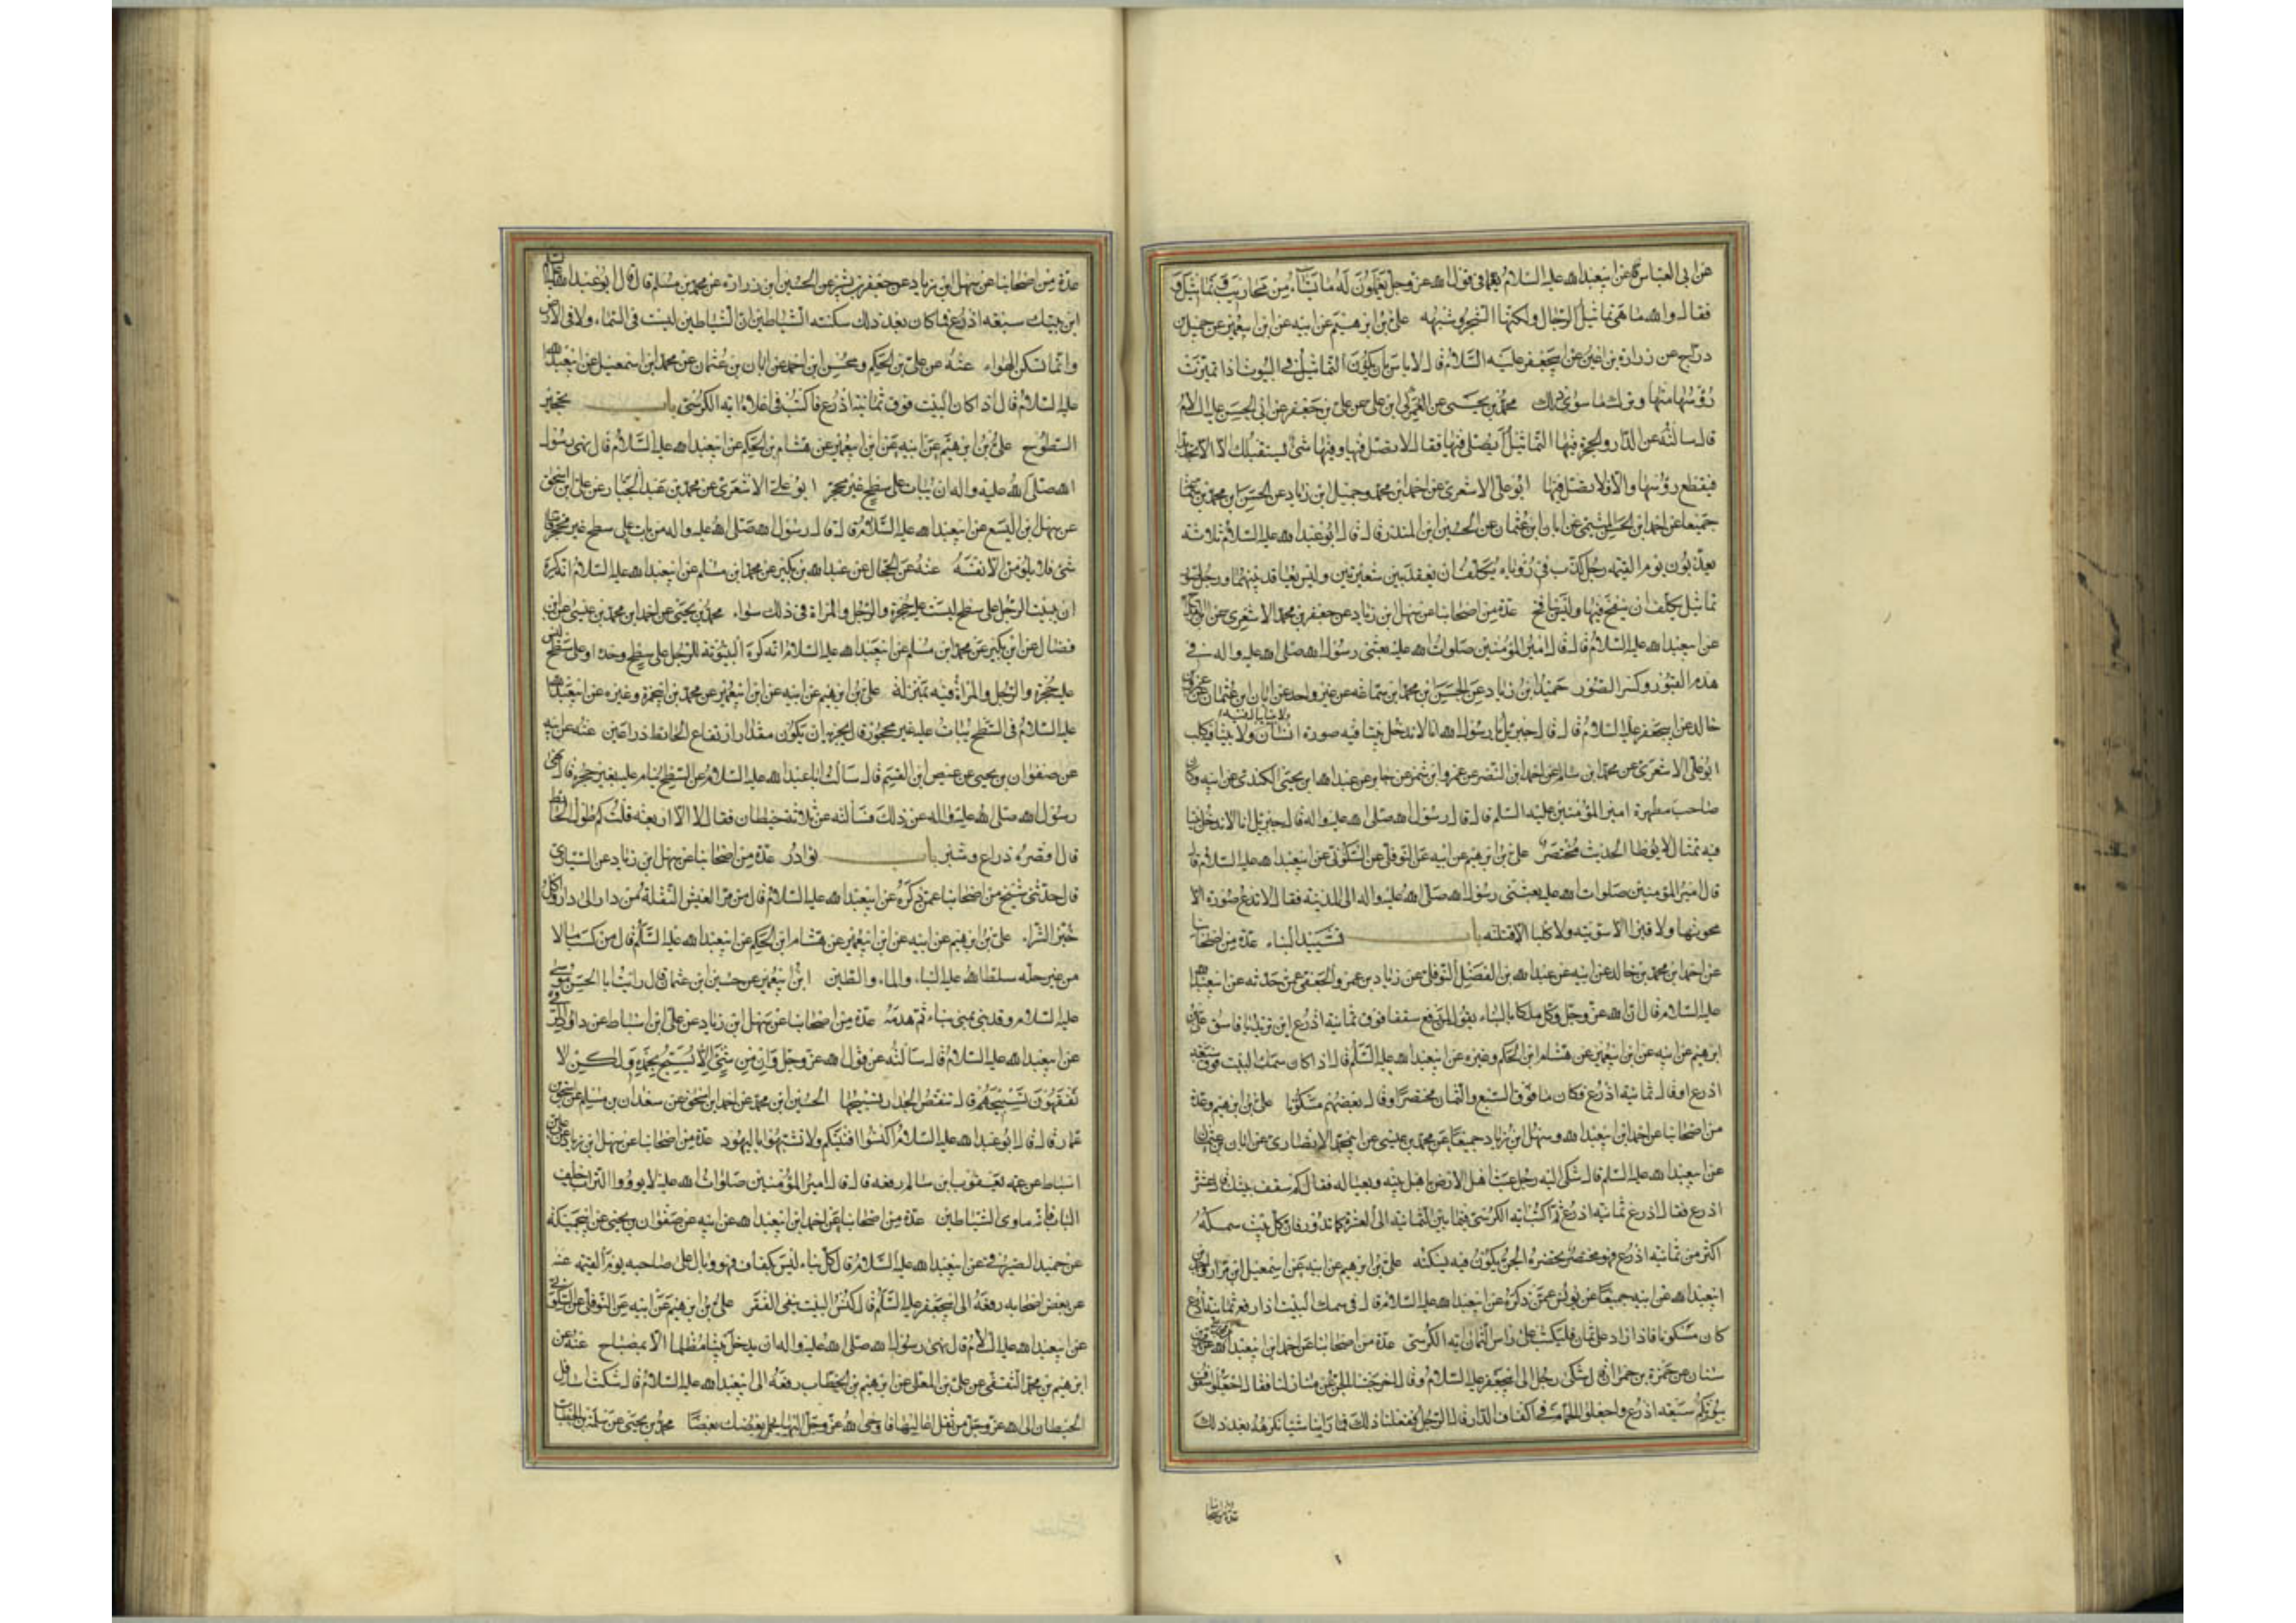 عن ابى العباس عن ابيعبدالله عليه السلام فى قول الله عز وجل يعملون له ما يشاء من محاريب وتماثيل
فقال والله ما هى تماثيل الرجال ولكنها الشجر وشبهه على بن ابرهيم عن ابيه عن ابن ابيعمير عن جميل بن
دراج عن زرارة بن اعين عن ابيجعفر عليه السلام قال لا باس بان يكون التماثيل فى البيوت اذا تميزت
رؤسها منها وترك ما سوى ذلك محمد بن يحيى عن العمركى ابن على عن على بن جعفر عن ابى الحسن عليه السلم
قال سالته عن الدار والحجرة فيها التماثيل ايصلى فيها فقال لا يصلى فيها وفيها شئ يستقبلك الا
فيقطع رؤسها والا فلا يصلى فيها ابو على الاشعرى عن احمد ابن محمد وحميد ابن زياد عن الحسن ابن محمد بن
جميعا عن احمد ابن الحسن الميثمى عن ابان ابن عثمان عن الحسين ابن المنذر قال قال ابو عبدالله عليه السلام ثلاثة
يعذبون يوم القيمة رجل كذب فى رؤياه يكلف ان يعقد بين شعيرتين وليس بعاقد بينهما ورجل صور
تماثيل يكلف ان ينفخ فيها وليس بنافخ عدة من اصحابنا عن سهل ابن زياد عن جعفر بن محمد الاشعرى عن
عن ابيعبدالله عليه السلام قال قال امير المؤمنين صلوات الله عليه بعثنى رسول الله صلى الله عليه واله فى
هدم القبور وكسر الصور حميد ابن زياد عن الحسن ابن محمد ابن سماعه عن غير واحد عن ابان ابن عثمان عن
خالد عن ابيجعفر عليه السلام قال قال جبرئيل يا رسول الله انا لا ندخل بيتا فيه صورة انسان ولا بيتا فيه كلب
ابو على الاشعرى عن محمد ابن سالم عن احمد ابن النضر عن عمرو ابن شمر عن جابر عن عبدالله ابن يحيى الكندى عن ابيه وكان
صاحب مطهرة امير المؤمنين عليه السلم قال قال رسول الله صلى الله عليه واله قال جبرئيل انا لا ندخل بيتا
فيه تمثال لا يوطا الحديث مختصر على بن ابرهيم عن ابيه عن النوفلى عن السكونى عن ابيعبدالله عليه السلام قال
قال امير المؤمنين صلوات الله عليه بعثنى رسول الله صلى الله عليه واله الى المدينة فقال لا تدع صورة الا
محوتها ولا قبرا الا سويته ولا كلبا الا قتلته باب تشييد البناء عدة من اصحابنا
عن احمد ابن محمد بن خالد عن ابيه عن عبدالله بن الفضل النوفلى عن زياد بن عمرو الجعفى عمن حدثه عن ابيعبدالله
عليه السلام قال ان الله عز وجل وكل ملكا بالبناء يقول لمن رفع سقفا فوق ثمانية اذرع اين تريد يا فاسق على بن
ابرهيم عن ابيه عن ابن ابيعمير عن هشام ابن الحكم وغيره عن ابيعبدالله عليه السلم قال اذا كان سمك البيت فوق سبعة
اذرع او قال ثمانية اذرع فكان ما فوق السبع والثمان محتضرا وقال بعضهم مسكونا على بن ابرهيم وعدة
من اصحابنا عن احمد ابن ابيعبدالله وسهل ابن زياد جميعا عن محمد بن عيسى عن ابيمحمد الانصارى عن ابان بن عثمان
عن ابيعبدالله عليه السلم قال شكى اليه رجل عبث اهل الارض باهل بيته وبعياله فقال كم سقف بيتك قال عشرة
اذرع فقال اذرع ثمانية اذرع ثم اكتب اية الكرسى فيما بين الثمانية الى العشرة كما تدور فان كل بيت سمكه
اكثر من ثمانية اذرع فهو محتضر يحضره الجن يكون فيه يسكنه على بن ابرهيم عن ابيه عن اسمعيل ابن مرار واحمد بن
ابيعبدالله عن ابيه جميعا عن يونس عمن ذكره عن ابيعبدالله عليه السلام قال فى سمك البيت اذا رفع ثمانية اذرع
كان مسكونا فاذا زاد على ثمان فليكتب على راس الثمان اية الكرسى عدة من اصحابنا عن احمد ابن ابيعبدالله عن محمد بن
سنان عن حمزة بن حمران قال شكى رجل الى ابيجعفر عليه السلام وقال اخرجتنا الجن من منازلنا فقال اجعلوا سقوف
بيوتكم سبعة اذرع واجعلوا الحمام فى اكناف الدار قال الرجل ففعلنا ذلك فما راينا شيئا نكرهه بعد ذلك
عدة من اصحابنا
عدة من اصحابنا عن سهل ابن زياد عن جعفر بن بشير عن الحسين ابن زرارة عن محمد بن مسلم قال قال ابو عبدالله عليه السلم
ابن بيتك سبعة اذرع فما كان بعد ذلك سكنته الشياطين ان الشياطين ليست فى السماء ولا فى الارض
وانما تسكن الهواء عنه عن على بن الحكم ومحسن ابن احمد عن ابان بن عثمان عن محمد ابن اسمعيل عن ابيعبدالله
عليه السلام قال اذا كان البيت فوق ثمانية اذرع فاكتب فى اعلاه اية الكرسى باب تحجير
السطوح على بن ابرهيم عن ابيه عن ابن ابيعمير عن هشام بن الحكم عن ابيعبدالله عليه السلام قال نهى رسول
الله صلى الله عليه واله ان يبات على سطح غير محجر ابو على الاشعرى عن محمد بن عبد الجبار عن على ابن اسحق
عن سهل ابن اليسع عن ابيعبدالله عليه السلام قال قال رسول الله صلى الله عليه واله من بات على سطح غير محجر فاصابه
شئ فلا يلومن الا نفسه عنه عن الحجال عن عبدالله بن بكير عن محمد ابن مسلم عن ابيعبدالله عليه السلام انه كره
ان يبيت الرجل على سطح ليست عليه حجرة والرجل والمراة فى ذلك سواء محمد بن يحيى عن احمد ابن محمد بن عيسى عن ابن
فضال عن ابن بكير عن محمد ابن مسلم عن ابيعبدالله عليه السلام انه كره البيتوتة للرجل على سطح وحده او على سطح ليس
عليه حجرة والرجل والمراة فيه بمنزلة على بن ابرهيم عن ابيه عن ابن ابيعمير عن محمد بن ابيحمزة وغيره عن ابيعبدالله
عليه السلام فى السطح يبات عليه غير محجور قال يجزيه ان يكون مقدار ارتفاع الحائط ذراعين عنه عن ابيه
عن صفوان بن يحيى عن عيص ابن القسم قال سالت ابا عبدالله عليه السلام عن السطح ينام عليه بغير حجرة قال نهى
رسول الله صلى الله عليه واله عن ذلك فسالته عن ثلاثة حيطان فقال لا الا اربعة قلت كم طول الحائط
قال اقصره ذراع وشبر باب نوادر عدة من اصحابنا عن سهل ابن زياد عن السيارى
قال حدثنى شيخ من اصحابنا عمن ذكره عن ابيعبدالله عليه السلام قال من مر العيش النقلة من دار الى دار واكل
خبز الشراء على بن ابرهيم عن ابيه عن ابن ابيعمير عن هشام ابن الحكم عن ابيعبدالله عليه السلم قال من كسب مالا
من غير حله سلط الله عليه البناء والماء والطين ابن ابيعمير عن حسين ابن عثمان قال رايت ابا الحسن موسى
عليه السلام وقد بنى بمنى بناء ثم هدمه عدة من اصحابنا عن سهل ابن زياد عن على ابن اسباط عن داود الرقى
عن ابيعبدالله عليه السلام قال سالته عن قول الله عز وجل وان من شئ الا يسبح بحمده ولكن لا
تفقهون تسبيحهم قال تنقض الجدار تسبيحها الحسين ابن محمد عن احمد ابن اسحق عن سعدان بن مسلم عن اسحق بن
عمار قال قال ابو عبدالله عليه السلام اكنسوا افنيتكم ولا تشبهوا باليهود عدة من اصحابنا عن سهل ابن زياد عن على بن
اسباط عن عمه يعقوب ابن سالم رفعه قال قال امير المؤمنين صلوات الله عليه لا تؤووا التراب خلف
الباب فانه ماوى الشياطين عدة من اصحابنا عن احمد ابن ابيعبدالله عن ابيه عن صفوان بن يحيى عن ابيجميلة
عن حميد الصيرفى عن ابيعبدالله عليه السلام قال كل بناء ليس بكفاف فهو وبال على صاحبه يوم القيمة عنه
عن بعض اصحابه رفعه الى ابيجعفر عليه السلم قال كنس البيت ينفى الفقر على بن ابرهيم عن ابيه عن النوفلى عن السكونى
عن ابيعبدالله عليه السلام قال نهى رسول الله صلى الله عليه واله ان يدخل بيتا مظلما الا بمصباح عنه عن
ابرهيم بن محمد الثقفى عن على بن المعلى عن ابرهيم بن الخطاب رفعه الى ابيعبدالله عليه السلام قال شكت اسافل
الحيطان الى الله عز وجل من ثقل اعاليها فاوحى الله عز وجل اليها يحمل بعضك بعضا محمد بن يحيى عن سلمة بن الخطاب